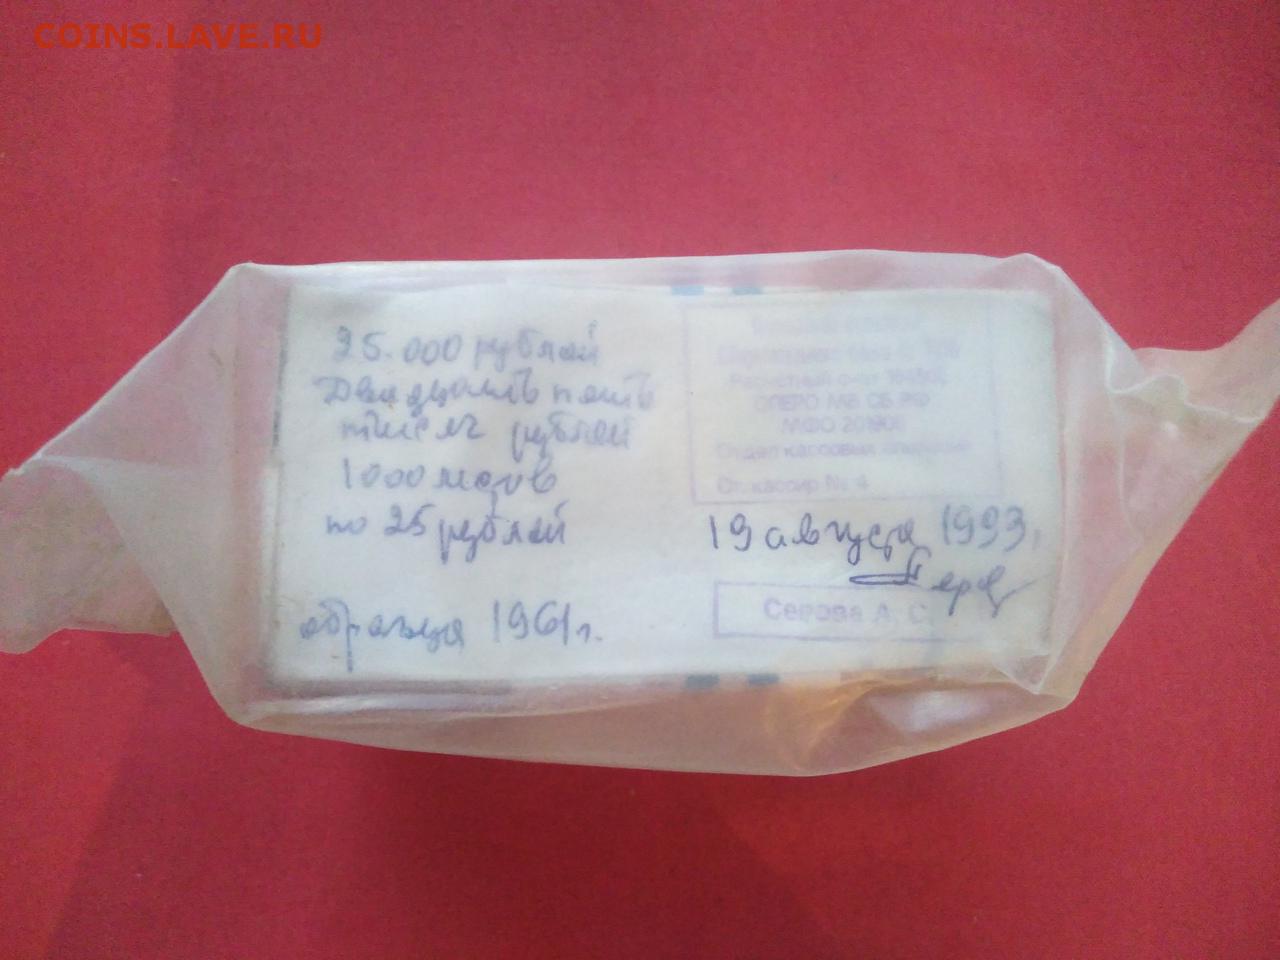 COINS.LAVE.RU
25.000 рублей
Двадцать пять
тысяч рублей
1000 листов
по 25 рублей
образца 1961г.
Расчетный счет
ОПЕРО МБ СБ РФ
МФО 201906
Отдел кассовых операций
Ст. кассир № 4
19 августа 1993.
Серова А. С.